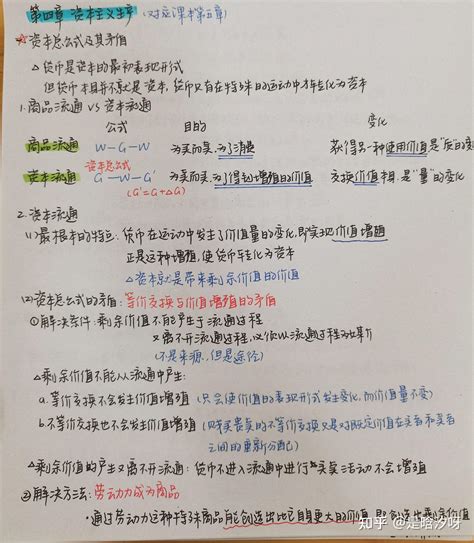 第四章 资本主义生产 (对应课本第五章)
☆资本总公式及其矛盾
△货币是资本的最初表现形式
但货币本身并不就是资本,货币只有在特殊的运动中才转化为资本
1.商品流通 vs 资本流通
公式 目的 变化
商品流通 W—G—W 为买而卖,为了消费 获得另一种使用价值是“质”的变
资本总公式
资本流通 G—W—G′ 为卖而买,为了得到增殖的价值 交换价值本身,是“量”的变化
(G′=G+△G)
2.资本流通
(1)最根本的特点:货币在运动中发生了价值量的变化,即实现价值增殖
正是这种增殖,使货币转化为资本
△资本就是带来剩余价值的价值
(2)资本总公式的矛盾:等价交换与价值增殖的矛盾
①解决条件:剩余价值不能产生于流通过程
又离不开流通过程,必须以流通过程为媒介
(不是来源,但是途径)
△剩余价值不能从流通中产生:
a.等价交换不会发生价值增殖 (只会使价值的表现形式发生变化,而价值量不变)
b.不等价交换也不会发生价值增殖 (贱买贵卖的不等价交换又是对既定价值在卖者和买者
之间的重新分配)
△剩余价值的产生又离不开流通:货币不进入流通中进行买卖活动不会增殖
②解决方法:劳动力成为商品
·通过劳动力这种特殊商品能创造出比它自身更大的价值,即创造出剩余价值
知乎 @是晗汐呀